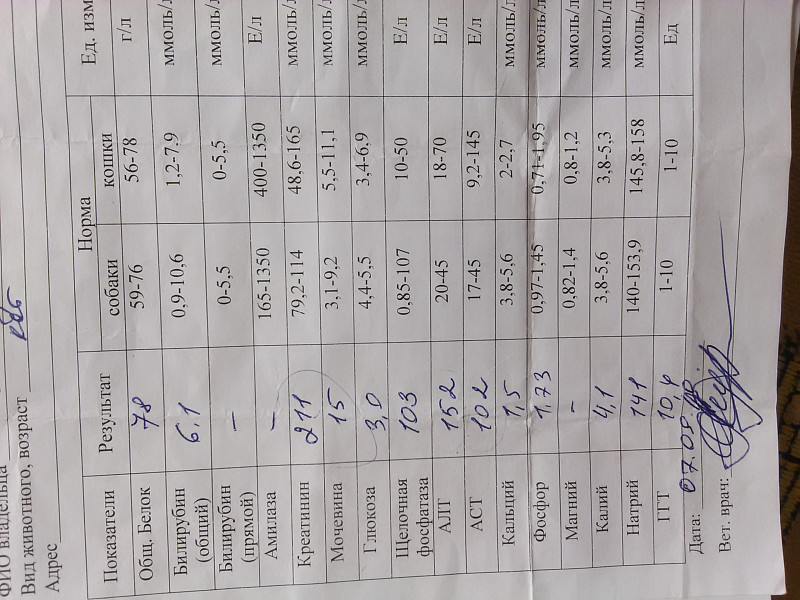 ФИО владельца
Вид животного, возраст кот
Адрес
Показатели Результат Норма Ед. изм
собаки кошки
Общ. Белок 78 59-76 56-78 г/л
Билирубин (общий) 6,1 0,9-10,6 1,2-7,9 ммоль/л
Билирубин (прямой) – 0-5,5 0-5,5 ммоль/л
Амилаза – 165-1350 400-1350 Е/л
Креатинин 211 79,2-114 48,6-165 ммоль/л
Мочевина 15 3,1-9,2 5,5-11,1 ммоль/л
Глюкоза 3,0 4,4-5,5 3,4-6,9 ммоль/л
Щелочная фосфатаза 103 0,85-107 10-50 Е/л
АЛТ 152 20-45 18-70 Е/л
АСТ 102 17-45 9,2-145 Е/л
Кальций 1,5 3,8-5,6 2-2,7 ммоль/л
Фосфор 1,73 0,97-1,45 0,71-1,95 ммоль/л
Магний – 0,82-1,4 0,8-1,2 ммоль/л
Калий 4,1 3,8-5,6 3,8-5,3 ммоль/л
Натрий 141 140-153,9 145,8-158 ммоль/л
ГГТ 10,4 1-10 1-10 Ед
Дата: 07.08
Вет. врач: